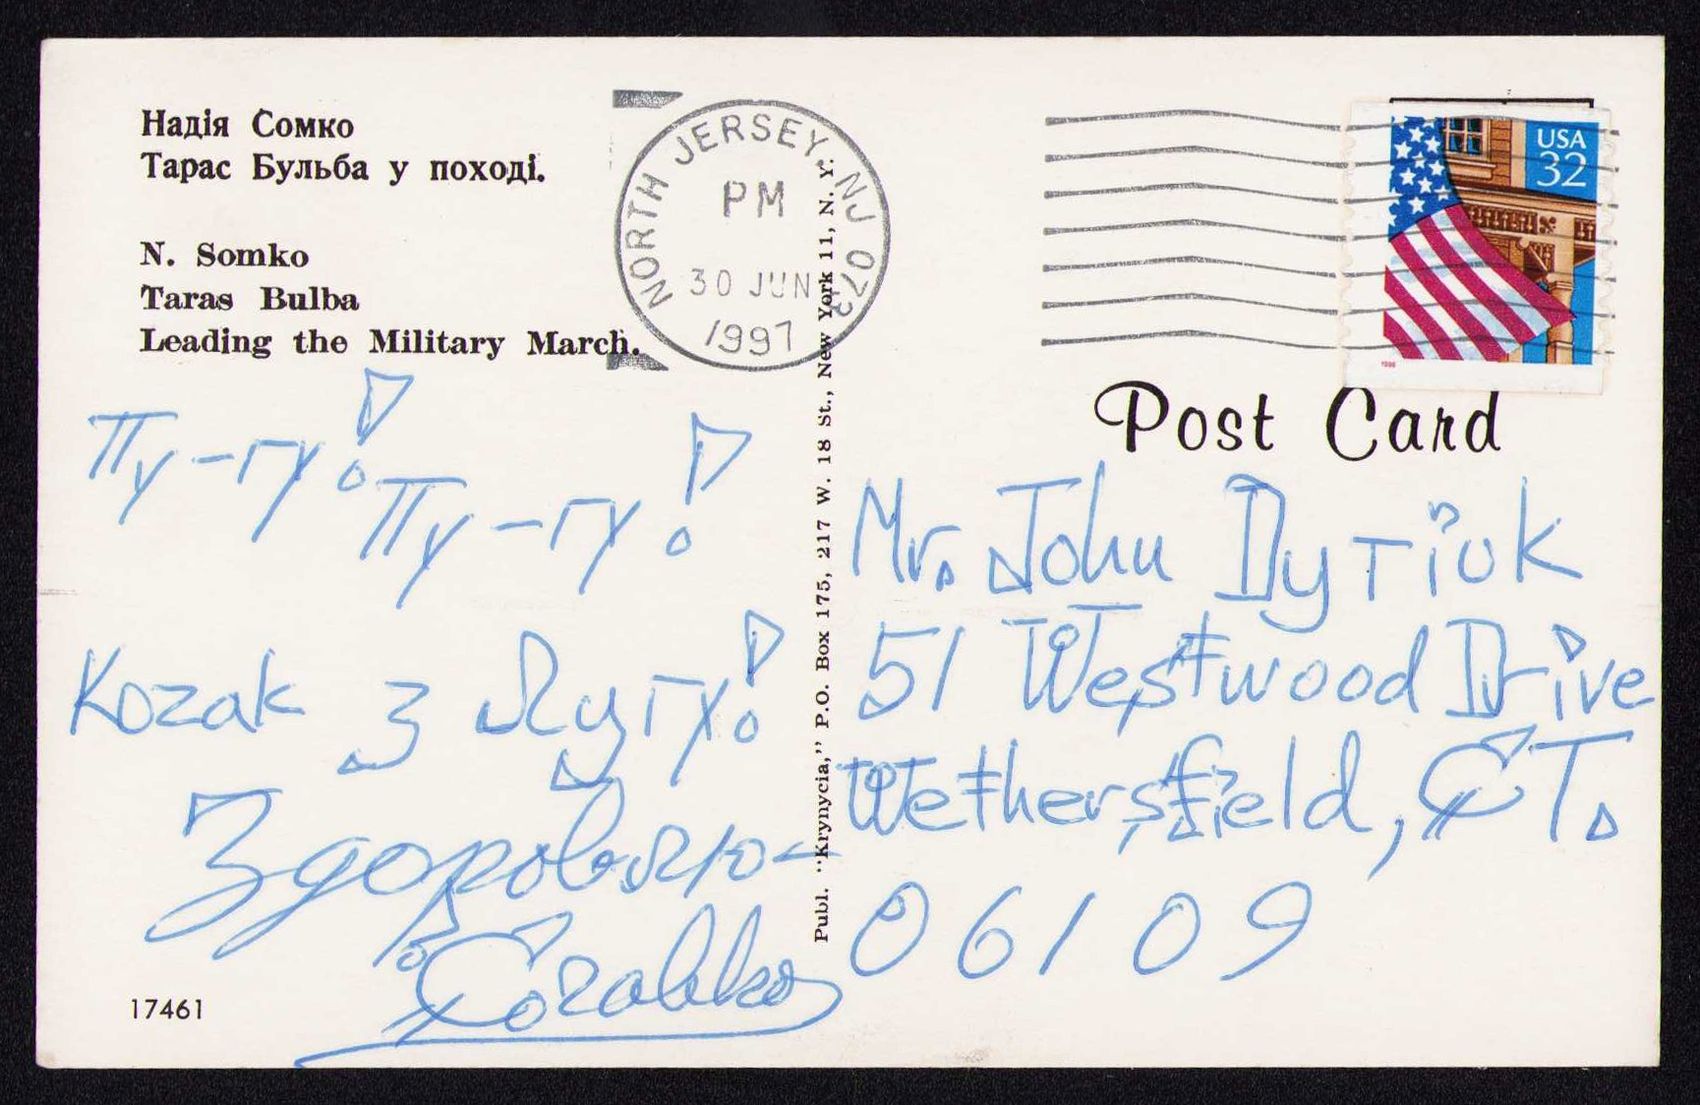 Надія Сомко
Тарас Бульба у поході.
N. Somko
Taras Bulba
Leading the Military March.
NORTH JERSEY, NJ 073
PM
30 JUN
1997
USA
32
1996
Post Card
Publ. "Krynycia," P.O. Box 175, 217 W. 18 St., New York 11, N. Y.
Пу-гу! Пу-гу!
Козак з Лугу!
Здоровлю-
Mr. John Dytiuk
51 Westwood Drive
Wethersfield, CT.
06109
17461